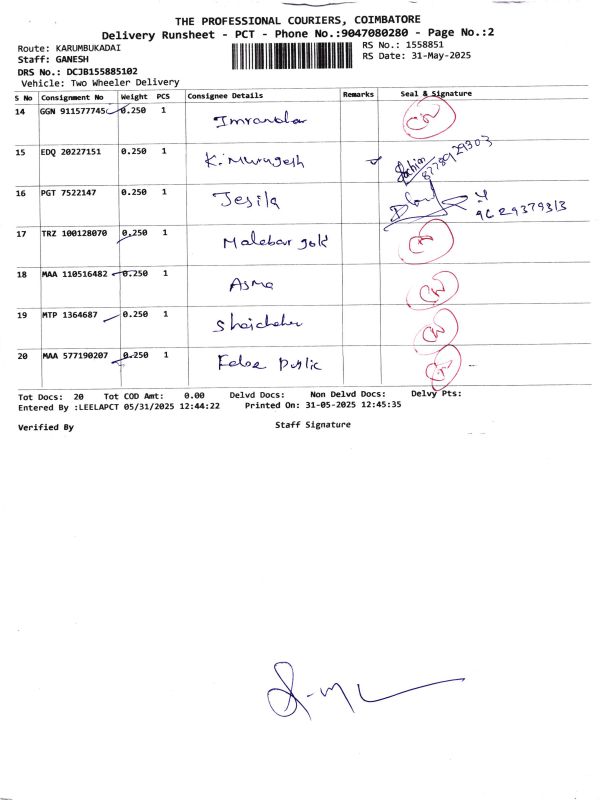 THE PROFESSIONAL COURIERS, COIMBATORE
Delivery Runsheet - PCT - Phone No.:9047080280 - Page No.:2
Route: KARUMBUKADAI RS No.: 1558851
Staff: GANESH RS Date: 31-May-2025
DRS No.: DCJB155885102
Vehicle: Two Wheeler Delivery
S No Consignment No Weight PCS Consignee Details Remarks Seal & Signature
14 GGN 911577745 0.250 1
15 EDQ 20227151 0.250 1 K. Murugesh 8778929303
16 PGT 7522147 0.250 1 Jesila
17 TRZ 100128070 0.250 1 Malabar gold
18 MAA 110516482 0.250 1 Asma
19 MTP 1364687 0.250 1
20 MAA 577190207 0.250 1 Public
Tot Docs: 20 Tot COD Amt: 0.00 Delvd Docs: Non Delvd Docs: Delvy Pts:
Entered By :LEELAPCT 05/31/2025 12:44:22 Printed On: 31-05-2025 12:45:35
Verified By Staff Signature